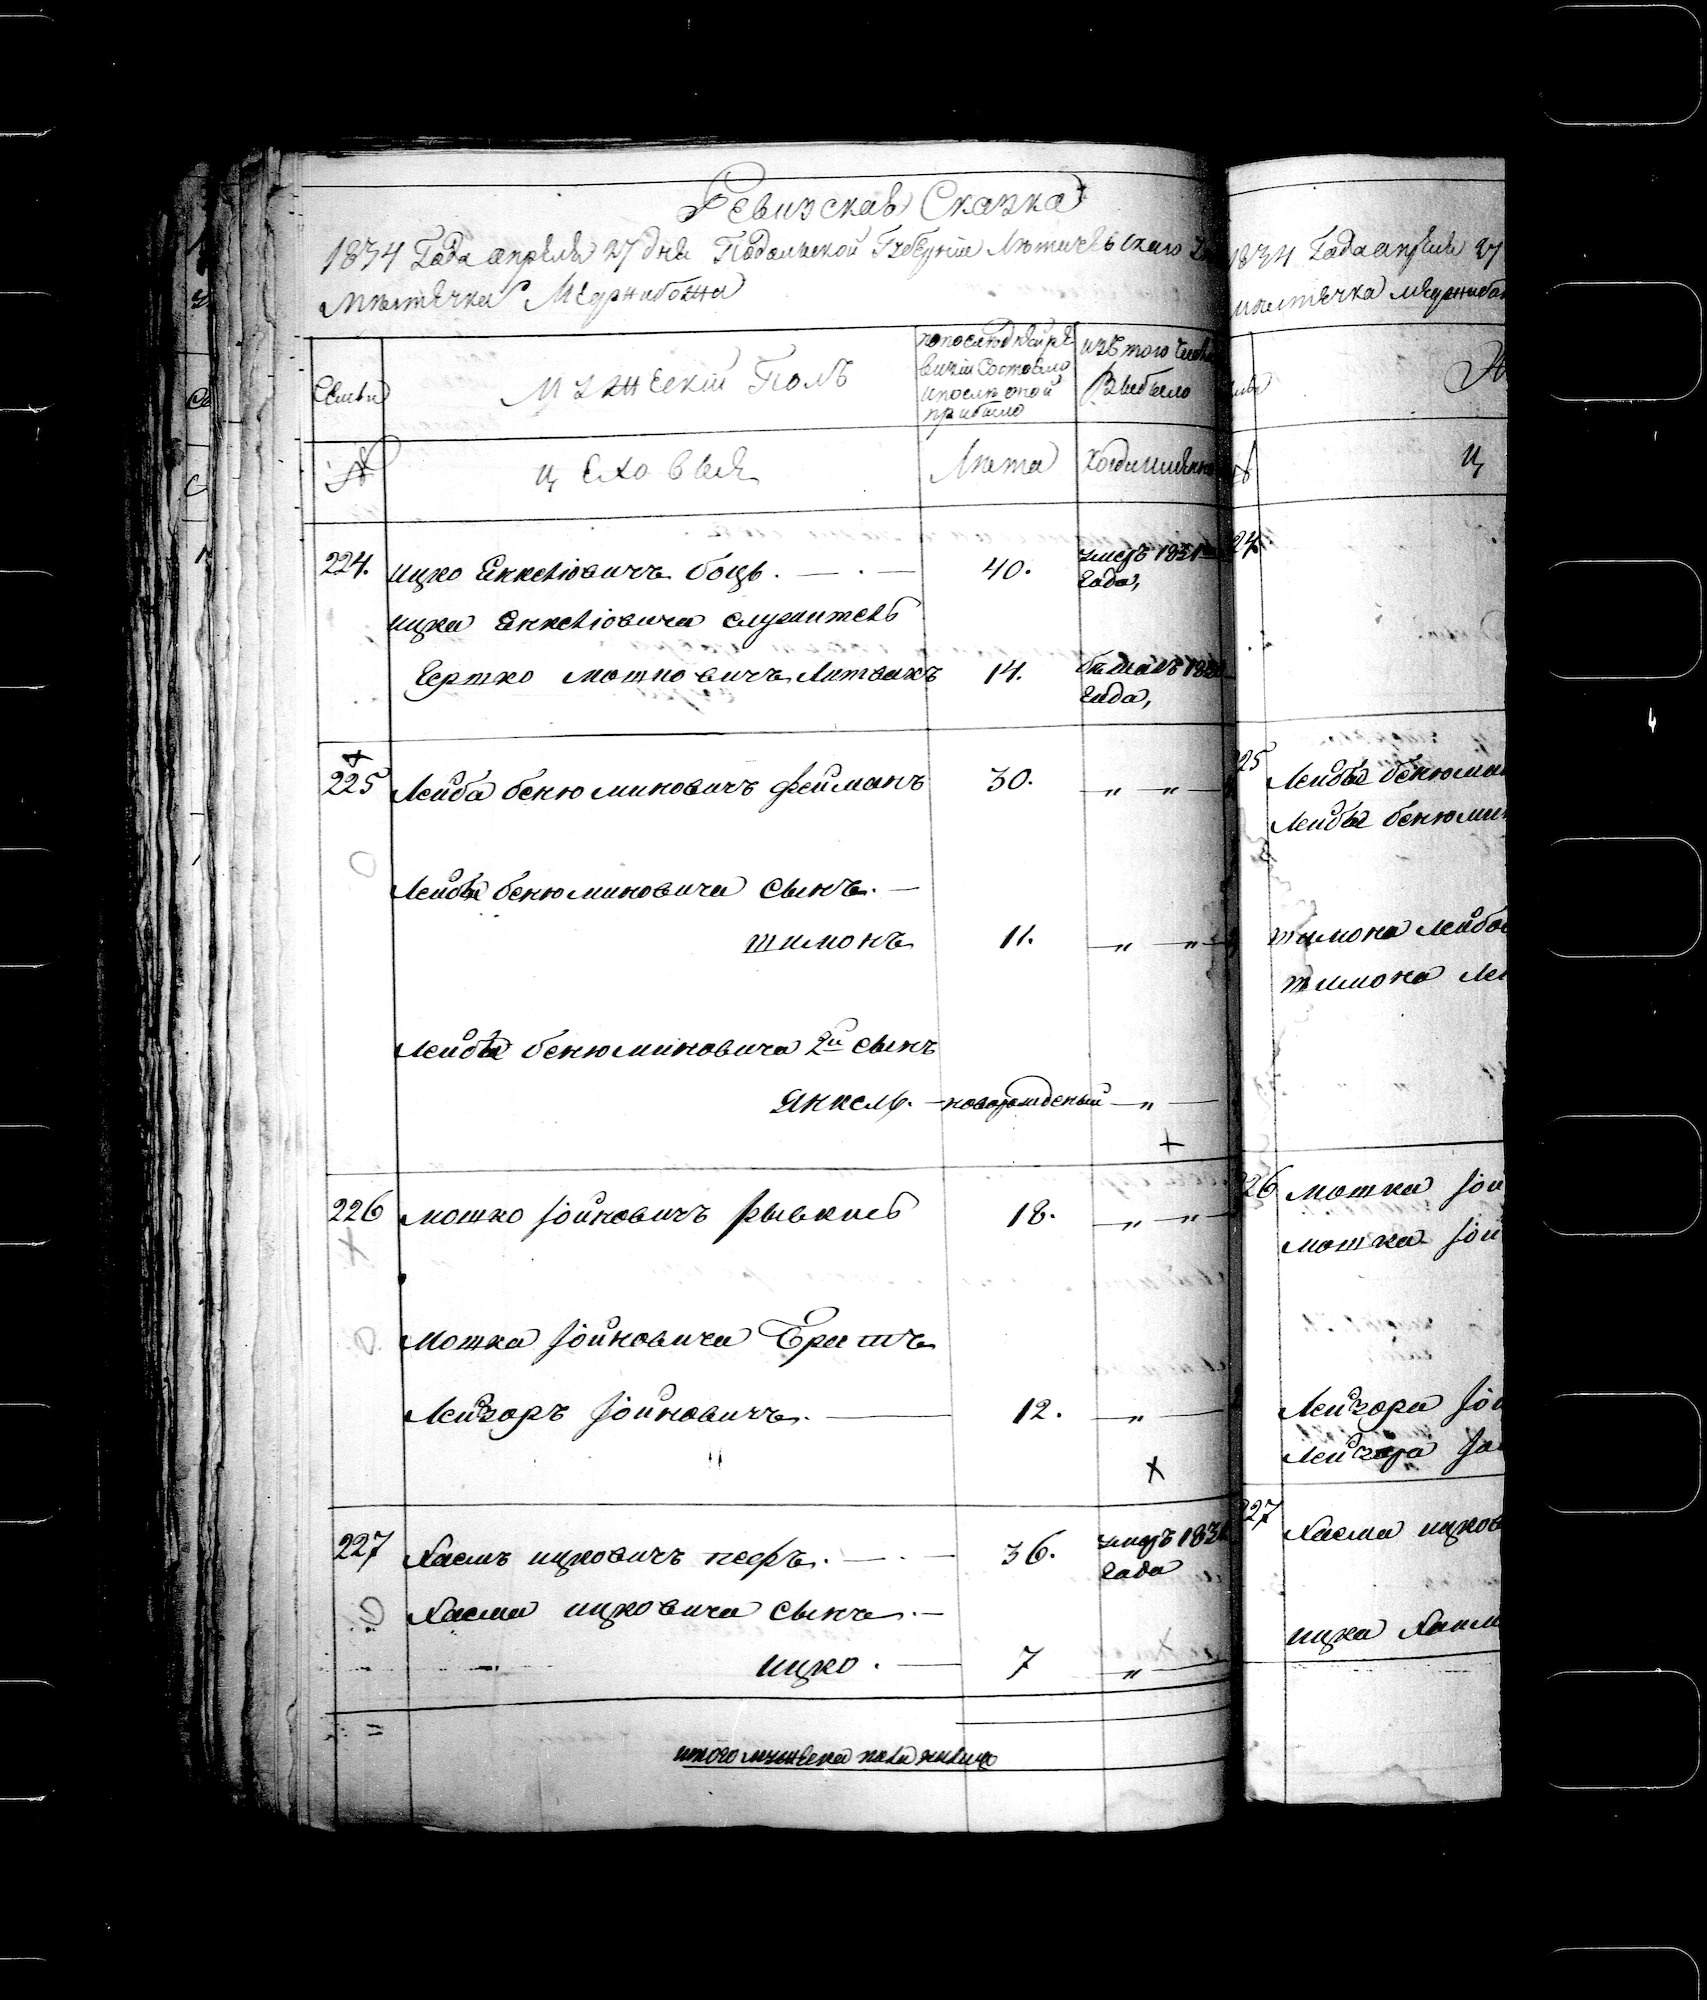 Ревизская Сказка
1834 Года апреля 27 дня Подольской Губернии Летичевскаго
Местечка Меджибожа
Семьи
Мужескій Полъ
по последней ре
визіи Состояло
и после оной
прибыло
изъ того числа
Выбыло
№
цеховые
Лета
Когда именно
224.
ицко Янкеліовичъ боцъ.
40.
умеръ 1831
года,
ицка Янкеліовича служитель
Гертко мошковичъ Литвакъ
14.
бежалъ
года,
225
Лейба бенюминовичъ фейманъ
30.
Лейбы бенюминовича Сынъ.
шимонъ
11.
Лейбы бенюминовича 2й сынъ
Янкель.
новорожденый
226
мошко Іойновичъ рывкис
18.
мошка Іойновича Братъ
Лейзоръ Іойновичъ.
12.
227
Хаимъ ицковичъ
36.
умеръ
года
Хаима ицковича сынъ.
ицко.
7
итого мужеска пола налицо
1834 Года апреля 27
местечка меджибо
ц
225
Лейбы бенюми
Лейбы бенюми
шимона лейбо
шимона ле
226
мошка Іой
мошка Іой
Лейзора Іой
Лейзора Іо
227
Хаима ицков
ицка Хаим